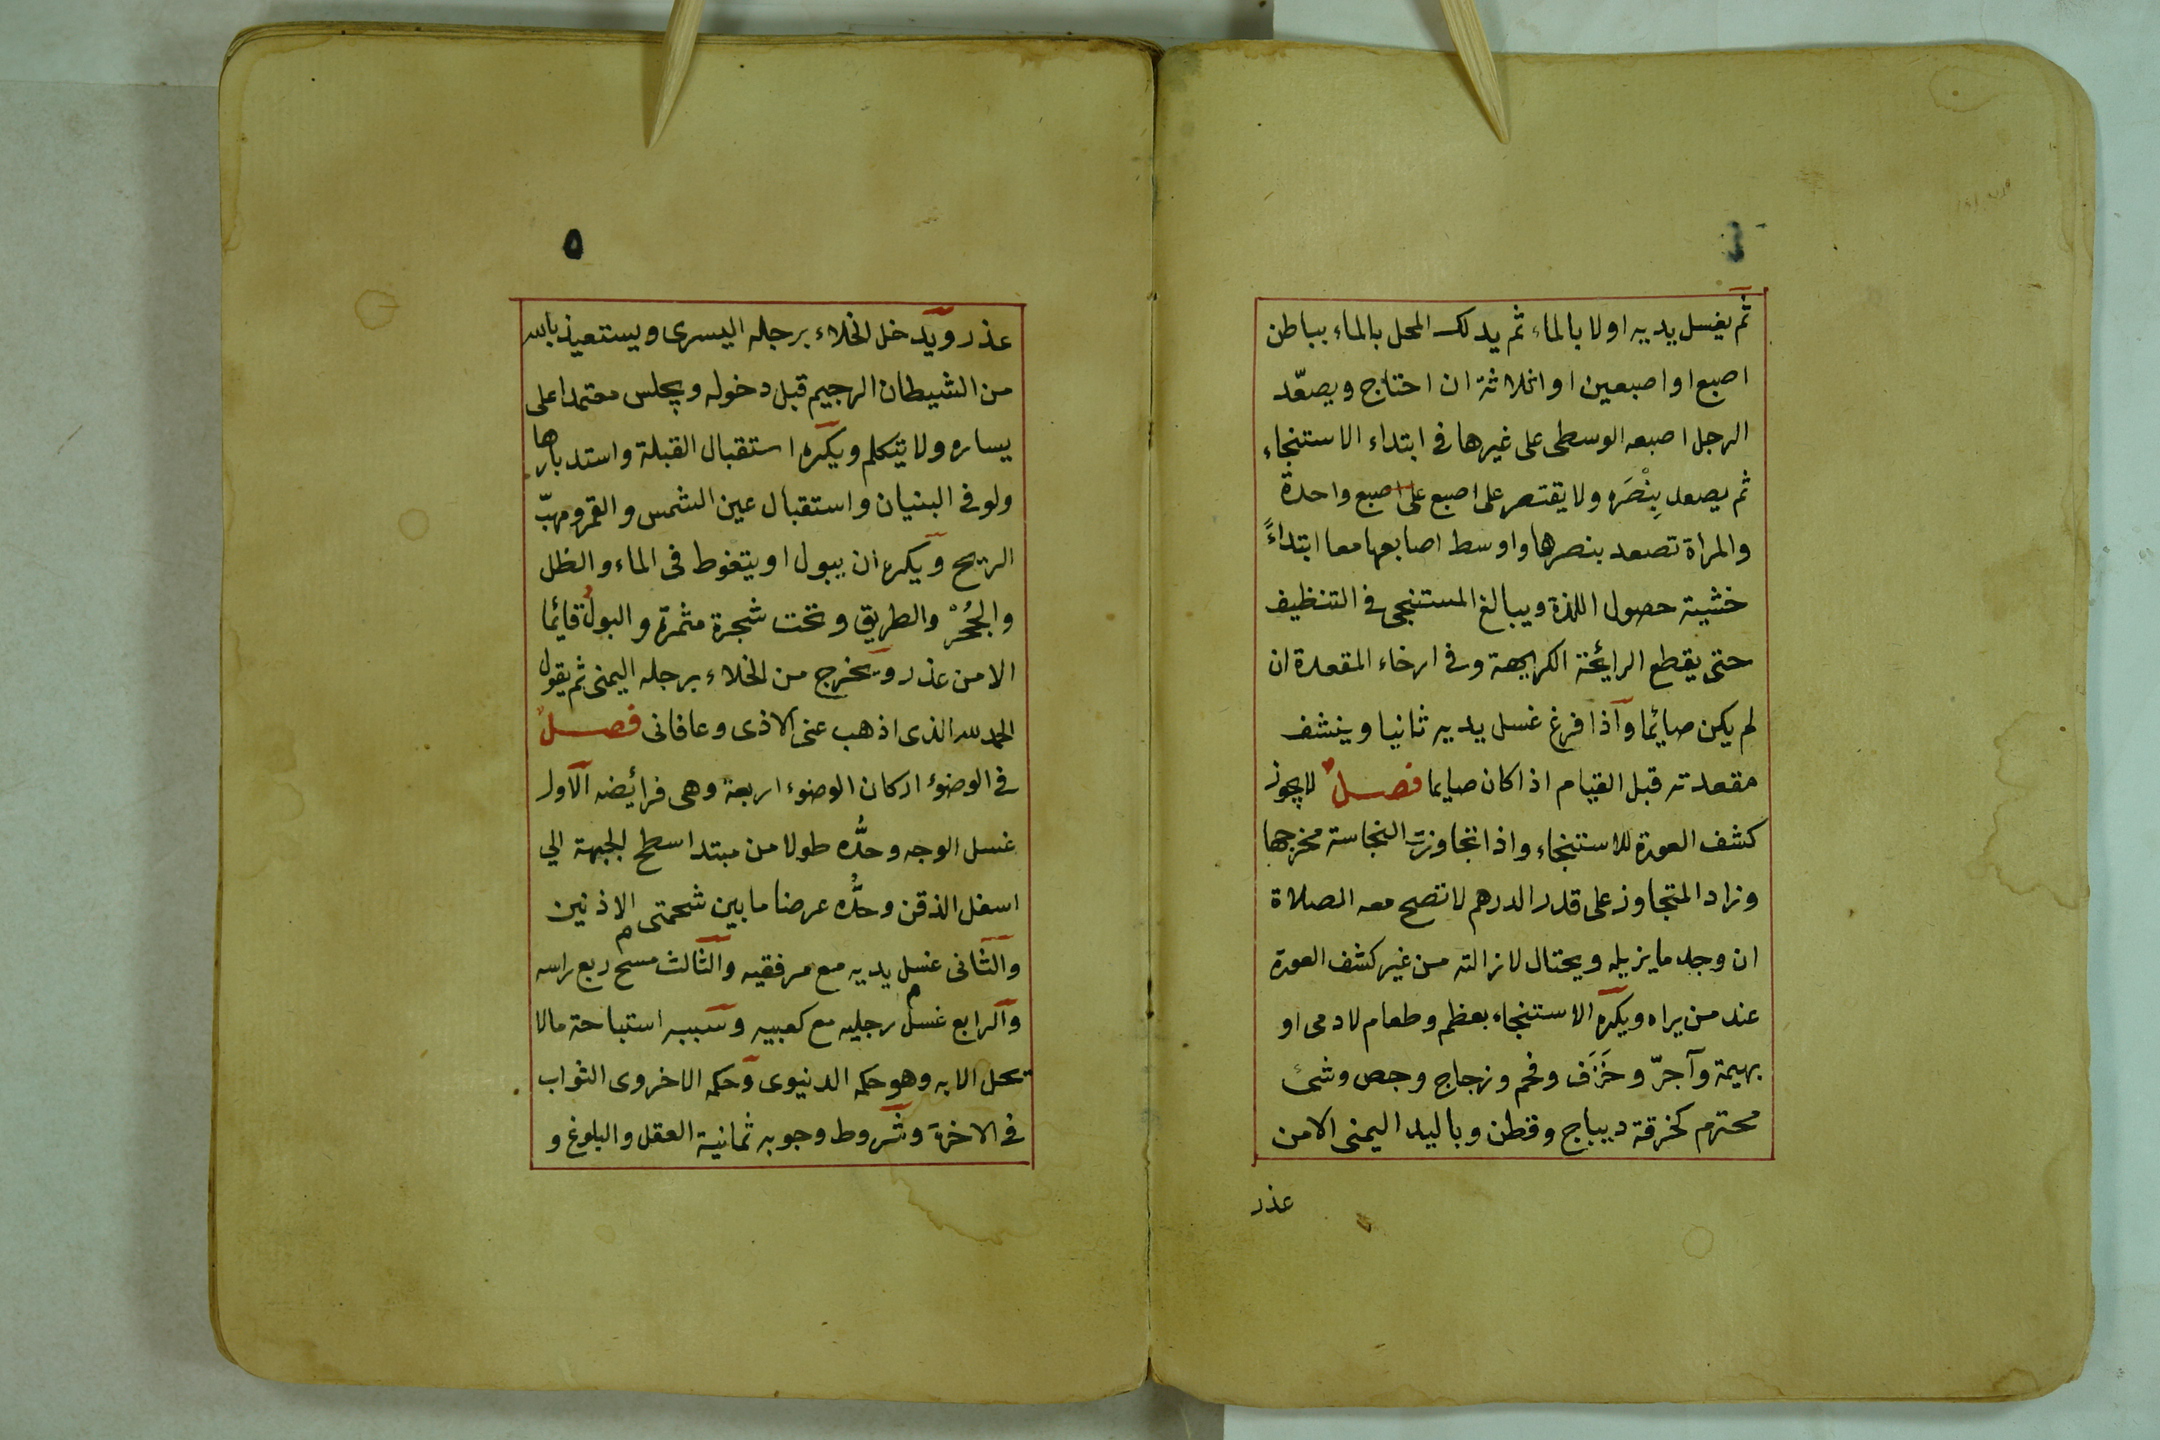 ثم يغسل يديه اولا بالماء ثم يدلك المحل بالماء بباطن
اصبع او اصبعين او اثلاثة ان احتاج ويصعّد
الرجل اصبعه الوسطى على غيرها في ابتداء الاستنجاء
ثم يصعد بِنْصَره ولا يقتصر على اصبع على اصبع واحدة
والمراة تصعد بنصرها واوسط اصابعها معا ابتداءً
خشية حصول اللذة ويبالغ المستنجى في التنظيف
حتى يقطع الرائحة الكريهة وفي ارخاء المقعدة ان
لم يكن صائما واذا فرغ غسل يديه ثانيا وينشف
مقعدته قبل القيام اذا كان صايما فصل لا يجوز
كشف العورة للاستنجاء واذا تجاوزت النجاسة مخرجها
وزاد المتجاوز على قدر الدرهم لا تصح معه الصلاة
ان وجد ما يزيله ويحتال لازالته من غير كشف العورة
عند من يراه ويكره الاستنجاء بعظم وطعام لادمى او
بهيمة وآجرّ وخَزَف وفحم وزجاج وجص وشئ
محترم كخرقة ديباج وقطن وباليد اليمنى الا من
عذر
٥
عذر ويدخل الخلاء برجله اليسرى ويستعيذ بالله
من الشيطان الرجيم قبل دخوله ويجلس معتمدا على
يساره ولا يتكلم ويكره استقبال القبلة واستدبارها
ولو في البنيان واستقبال عين الشمس والقمر ومهبّ
الريح ويكره ان يبول او يتغوط فى الماء والظل
والجُحْرْ والطريق وتحت شجرة مثمرة والبولُ قائما
الا من عذر ويخرج من الخلاء برجله اليمنى ثم يقول
الحمد لله الذى اذهب عنى الاذى وعافانى فصل
في الوضوء اركان الوضوء اربعة وهى فرائضه الاول
غسل الوجه وحدُّه طولا من مبتدا سطح الجبهة الي
اسفل الذقن وحدُّه عرضا ما بين شحمتى الاذنين
والثانى غسل يديه مع مرفقيه والثالث مسح ربع راسه
والرابع غسل رجليه مع كعبيه وسببه استباحة ما لا
يحل الا به وهو حكمه الدنيوى وحكمه الاخروى الثواب
في الاخرة وشروط وجوبه ثمانية العقل والبلوغ و